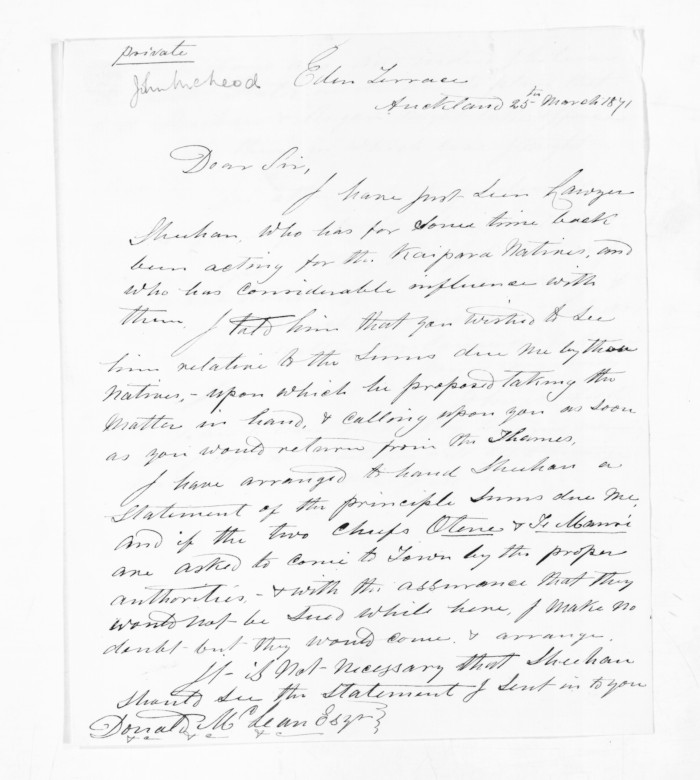 private
John McLeod
Eden Terrace
Auckland 25th March 1871
Dear Sir,
I have just seen Lawyer
Sheehan, who has for some time back
been acting for the Kaipara Natives, and
who has considerable influence with
them. I told him that you wished to see
him relative to the sums due me by those
Natives, - upon which he proposed taking the
Matter in hand, & calling upon you as soon
as you would return from the Thames,
I have arranged to hand Sheehan a
Statement of the principle sums due me,
and if the two chiefs Otene & Te Mauri
are asked to come to Town by the proper
authorities, - & with the assurance that they
would not be sued while here, I make no
doubt but they would come, & arrange.
It is Not necessary that Sheehan
should see the statement I sent in to you
Donald McLean Esqr}
&c &c &c